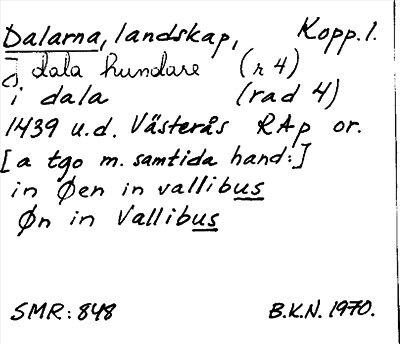 Dalarna, landskap, Kopp. l.
j dala hundare (r 4)
i dala (rad 4)
1439 u.d. Västerås RAp or.
[a tgo m. samtida hand:]
in Øen in vallibus
Øn in Vallibus
SMR: 848 B.K.N. 1970.